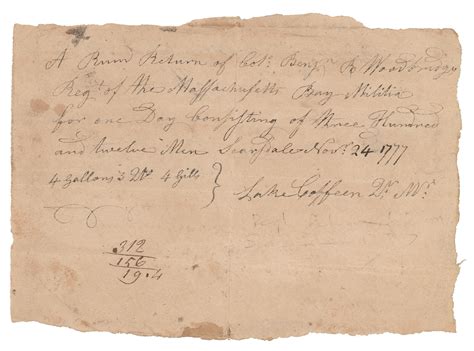 A Rum Return of Col: Benj.ⁿ R Woodbridge
Reg.ᵗ of the Massachusetts Bay Militia
for one Day Consisting of three Hundred
and twelve Men Scarsdale Nov.ʳ 24 1777
4 Gallons 3 Qts 4 Gills }
Luke Coffeen Qʳ Mʳ
312
156
19.4